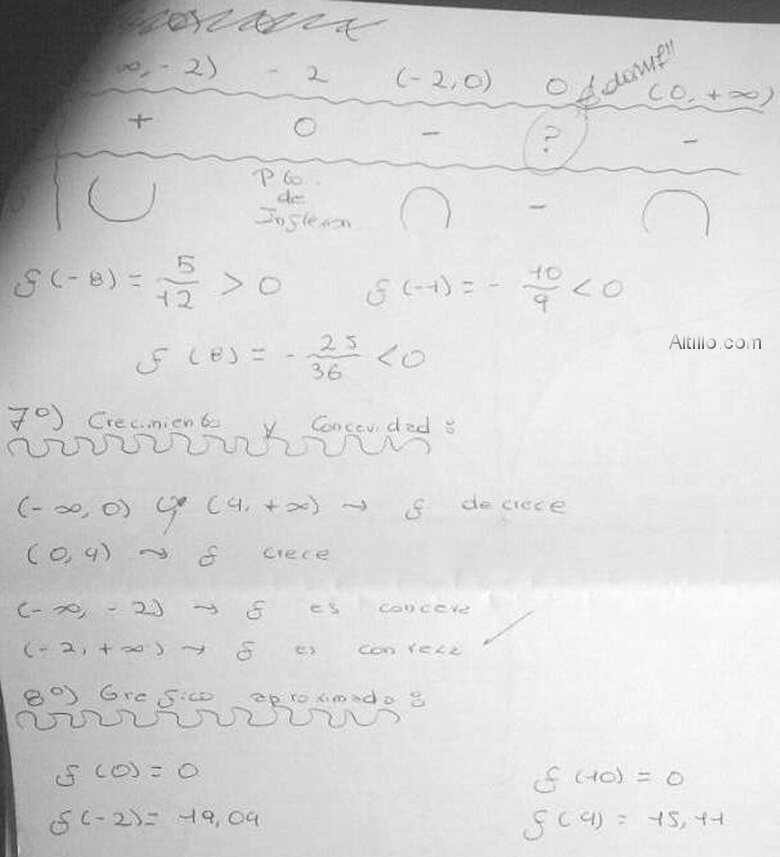 ∞, -2) -2 (-2, 0) 0 ∉ domf" (0, +∞)
+ 0 - ? -
Pto. de Inflexion -
f(-8) = 5/12 > 0 f(-1) = - 10/9 < 0
f(8) = - 25/36 < 0
Altillo.com
7°) Crecimiento y Concavidad:
(-∞, 0) y (4, +∞) → f decrece
(0, 4) → f crece
(-∞, -2) → f es concava
(-2, +∞) → f es convexa
8°) Grafico aproximado:
f(0) = 0 f(10) = 0
f(-2) = 19,04 f(4) = 15,11